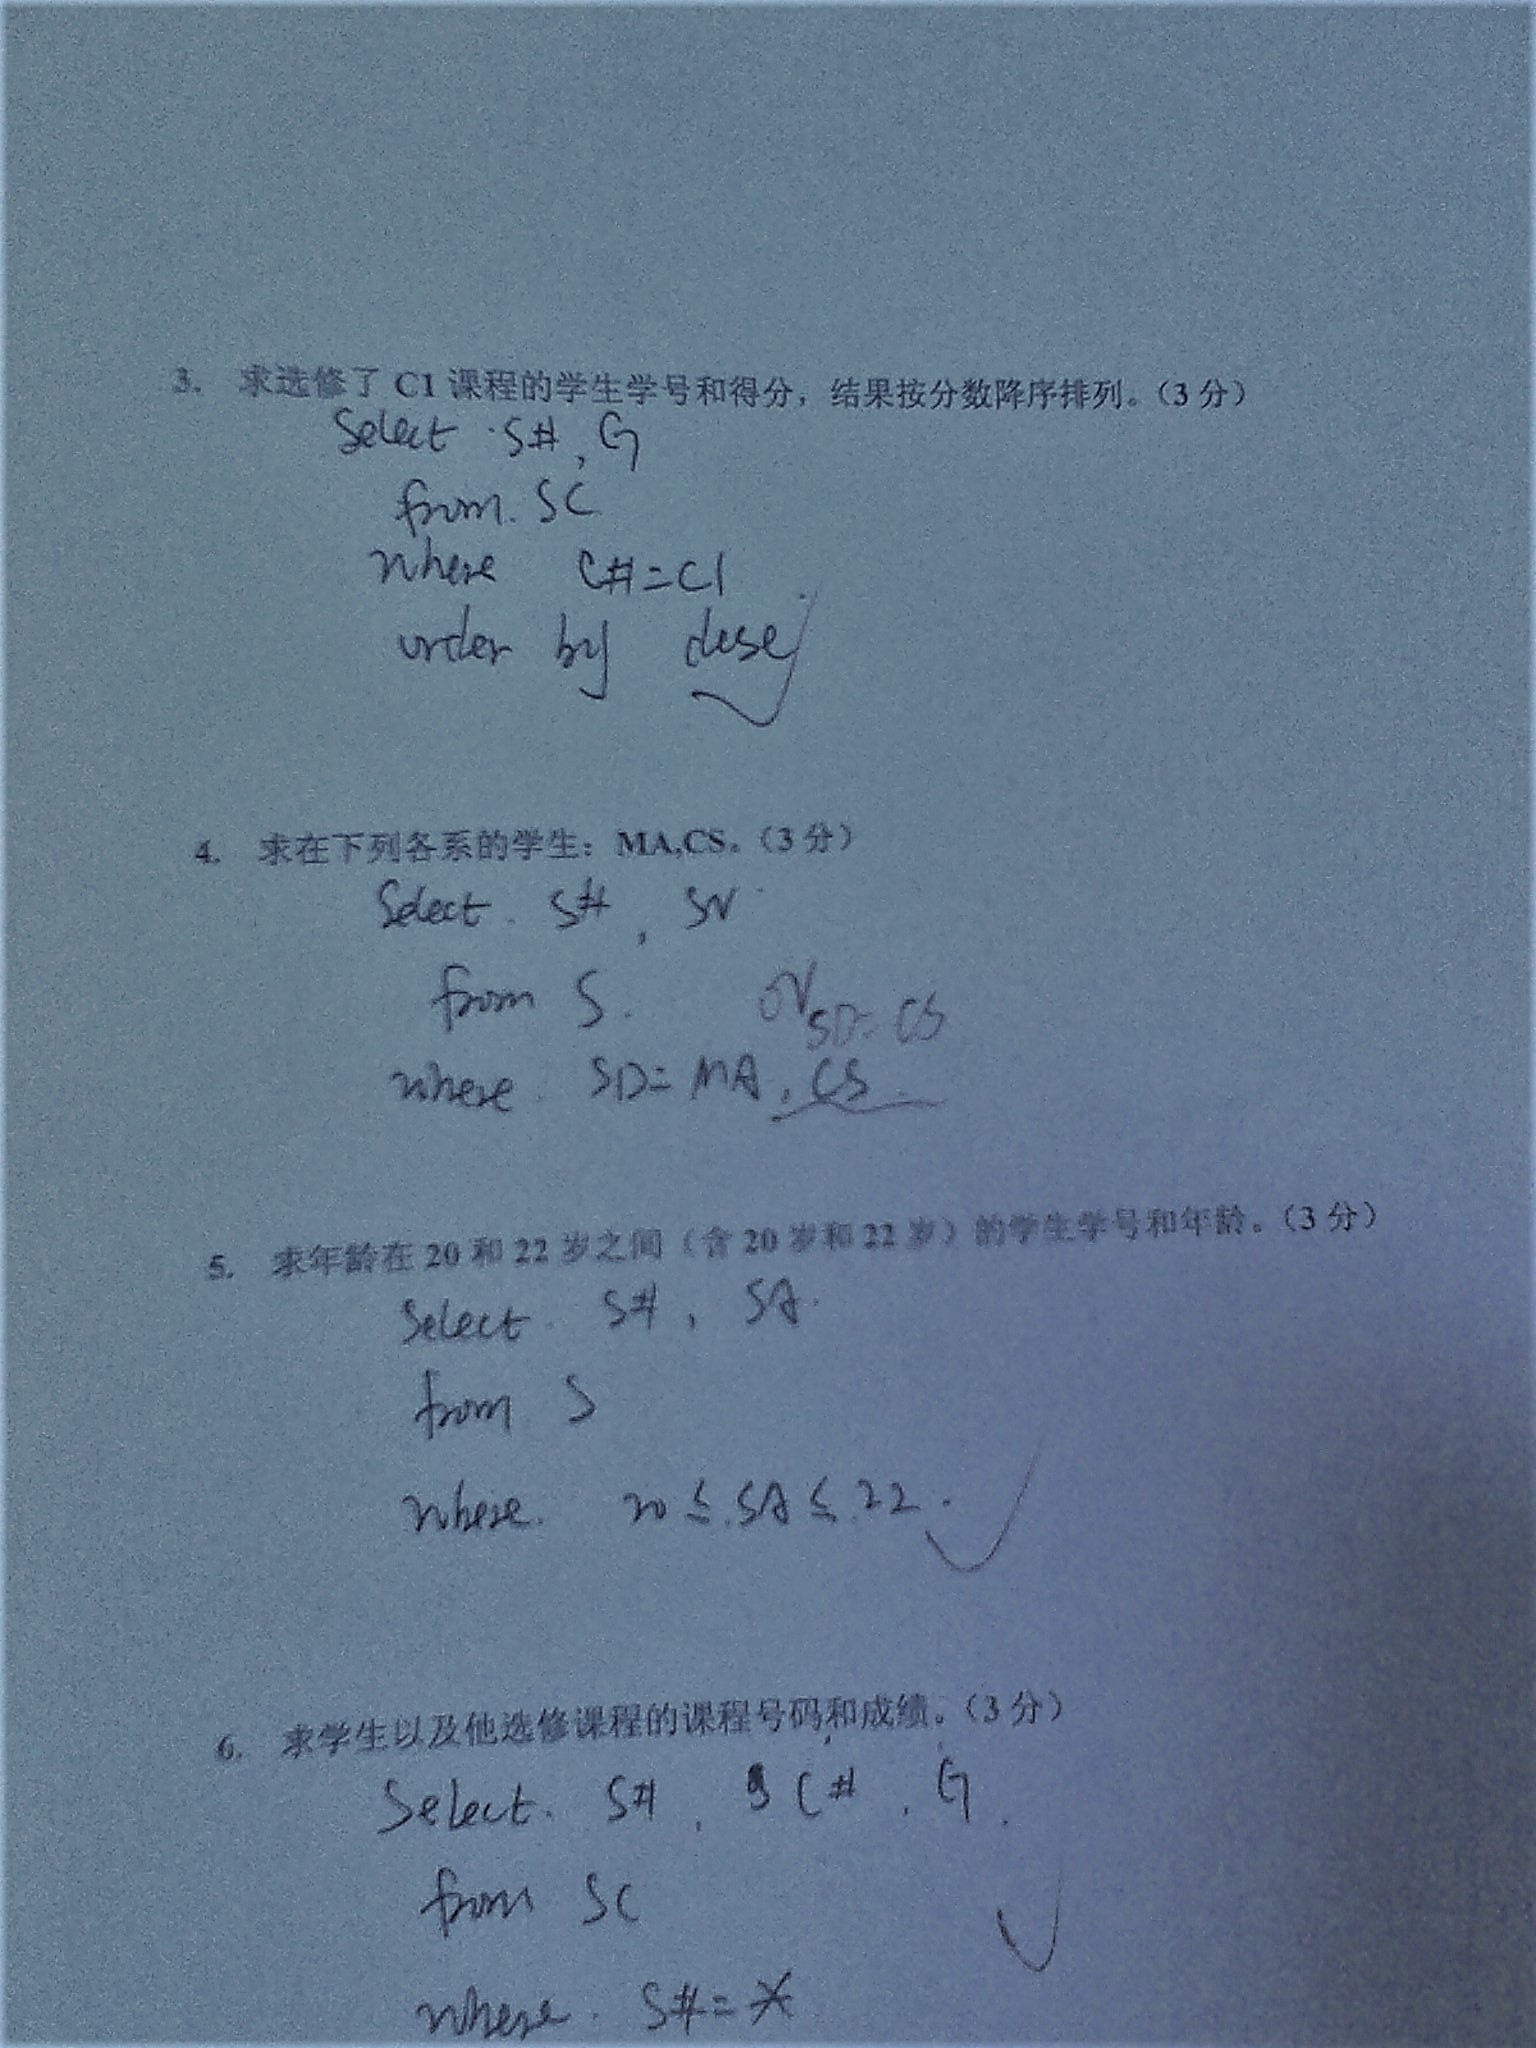 3. 求选修了 C1 课程的学生学号和得分，结果按分数降序排列。（3 分）
Select S#, G
from SC
where C#=C1
order by dese
4. 求在下列各系的学生：MA,CS。（3 分）
Select S#, SN
from S.
or SD=CS
where SD= MA, CS
5. 求年龄在 20 和 22 岁之间（含 20 岁和 22 岁）的学生学号和年龄。（3 分）
Select S#, SA
from S
where 20 ≤ SA ≤ 22.
6. 求学生以及他选修课程的课程号码和成绩。（3 分）
Select. S#, C#, G.
from SC
where. S#=*